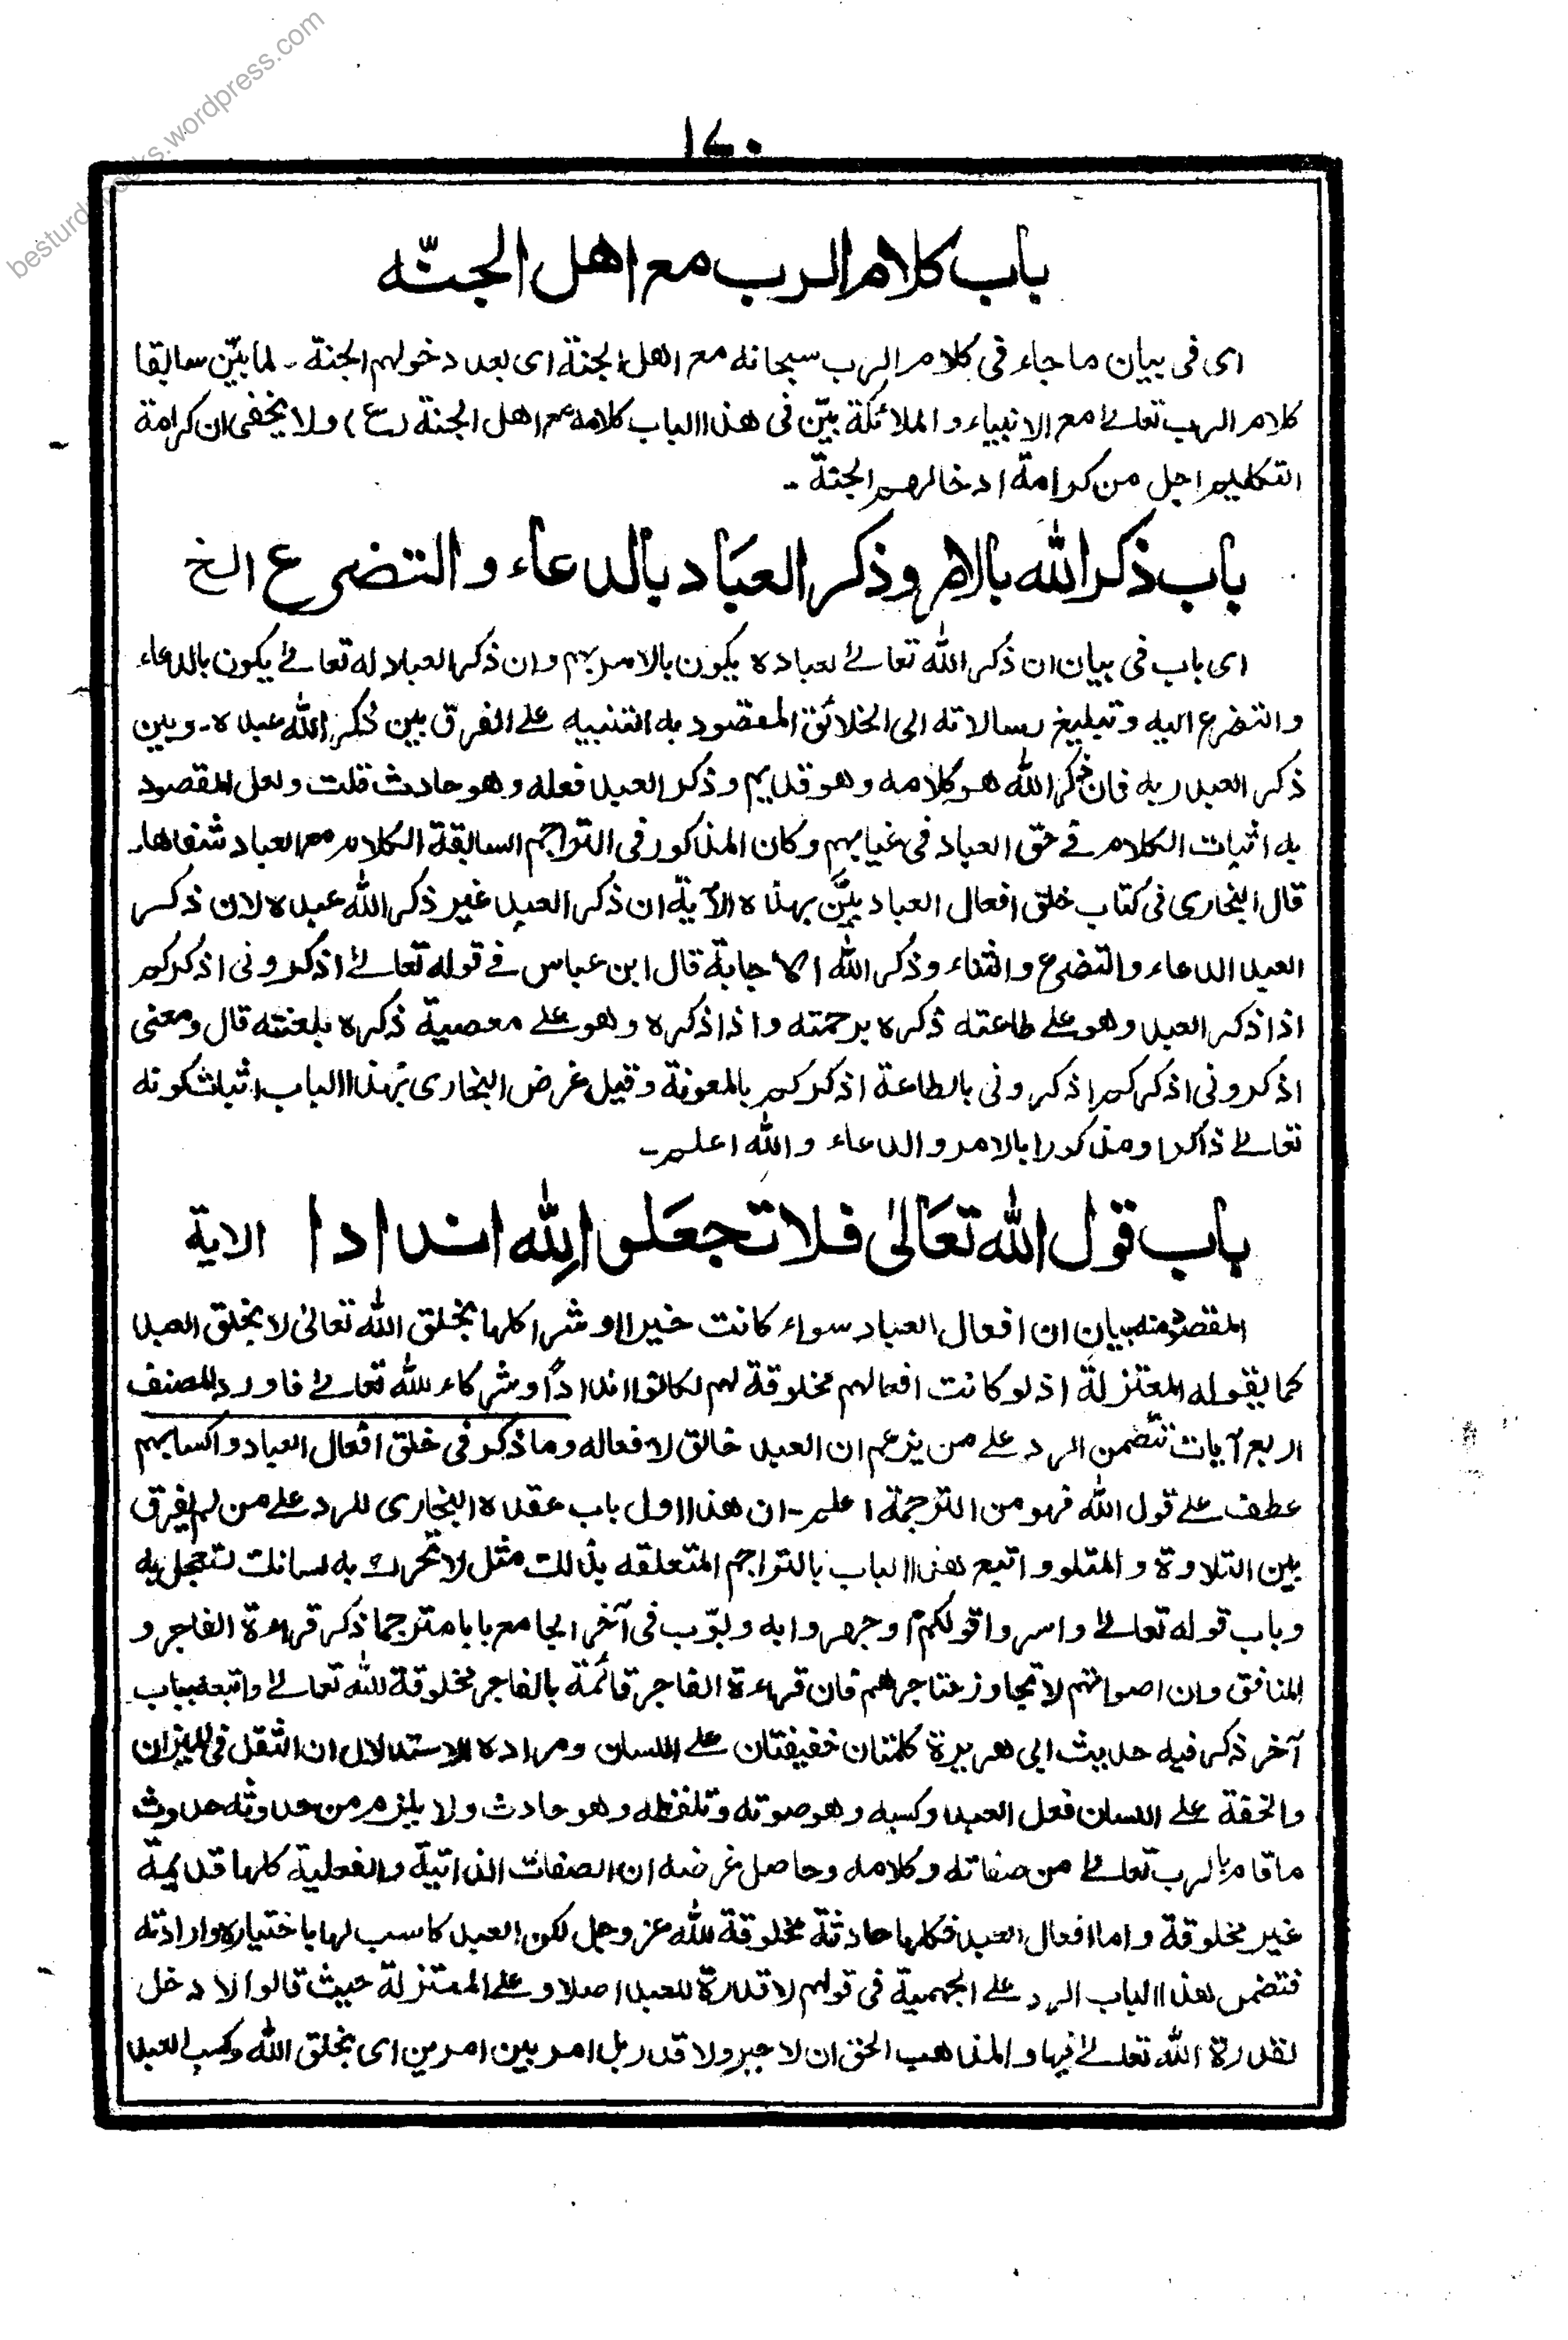 besturdubooks.wordpress.com
١٤٠
باب كلام الرب مع اهل الجنّه
اى فى بيان ما جاء فى كلام الرب سبحانه مع اهل الجنة اى بعد دخولهم الجنة ـ لما بيّن سابقا
كلام الرب تعالے مع الانبياء و الملائكة بيّن فى هذا الباب كلامه مع اهل الجنة (ع) ولا يخفى ان كرامة
التكليم اجل من كرامة ادخالهم الجنة ـ
باب ذكر الله بالامر وذكر العباد بالدعاء والتضرع الخ
اى باب فى بيان ان ذكر الله تعالےٰ لعباده يكون بالامر بهم وان ذكر العباد له تعالےٰ يكون بالدعاء
والتضرع اليه وتبليغ رسالاته الى الخلائق المقصود به التنبيه علے الفرق بين ذكر الله عبده ـ وبين
ذكر العبد ربه فان ذكر الله هو كلامه وهو قديم وذكر العبد فعله وهو حادث قلت ولعل المقصود
به اثبات الكلام فے حق العباد فى غيابهم وكان المذكور فى التراجم السابقة الكلام مع العباد شفاها ـ
قال البخارى فى كتاب خلق افعال العباد بيَّن بهذه الآية ان ذكر العبد غير ذكر الله عبده لان ذكر
العبد الدعاء والتضرع والثناء وذكر الله الاجابة قال ابن عباس فے قوله تعالےٰ اذكرونى اذكركم
اذا ذكر العبد وهو علے طاعته ذكره برحمته واذا ذكره وهو علے معصية ذكره بلعنته قال ومعنى
اذكرونى اذكركم اذكرونى بالطاعة اذكركم بالمعونة وقيل غرض البخارى بهذا الباب اثبات كونه
تعالےٰ ذاكرا ومذكورا بالامر والدعاء والله اعلم ـ
باب قول الله تعَالىٰ فلا تجعَلوا لِلّٰه اندادا الاية
المقصود منه بيان ان افعال العباد سواء كانت خيرا او شرا كلها بخلق الله تعالىٰ لا بخلق العبد
كما يقوله المعتزلة اذ لو كانت افعالهم مخلوقة لهم لكانوا انداداً وشركاء لله تعالےٰ فاورد المصنف
اربع آيات تتضمن الرد علے من يزعم ان العبد خالق لافعاله وما ذكر فى خلق افعال العباد واكسابهم
عطف علے قول الله فهو من الترجمة اعلم ـ ان هذا اول باب عقده البخارى للرد علے من لم يفرق
بين التلاوة والمتلو واتبع هذا الباب بالتراجم المتعلقه بذلك مثل لا تحرك به لسانك لتعجل به
وباب قوله تعالےٰ واسروا قولكم او جهروا به وبوّب فى آخر الجامع بابا مترجما ذكر قراءة الفاجر و
المنافق وان اصواتهم لا تجاوز حناجرهم فان قراءة الفاجر قائمة بالفاجر مخلوقة لله تعالےٰ واتبعه بباب
آخر ذكر فيه حديث ابى هريرة كلمتان خفيفتان علے اللسان ومراده الاستدلال ان الثقل فى الميزان
والخفة علے اللسان فعل العبد وكسبه وهو صوته وتلفظه وهو حادث ولا يلزم من حدوثه حدوث
ما قام بالرب تعالےٰ من صفاته وكلامه وحاصل غرضه ان الصفات الذاتية والفعلية كلها قديمة
غير مخلوقة واما افعال العبد فكلها حادثة مخلوقة لله عز وجل لكن العبد كاسب لها باختياره وارادته
فتضمن هذا الباب الرد علے الجهمية فى قولهم لا قدرة للعبد اصلا وعلے المعتزلة حيث قالوا لا دخل
لقدرة الله تعالےٰ فيها والمذهب الحق ان لا جبر ولا قدر بل امر بين امرين اى بخلق الله وكسب العبد